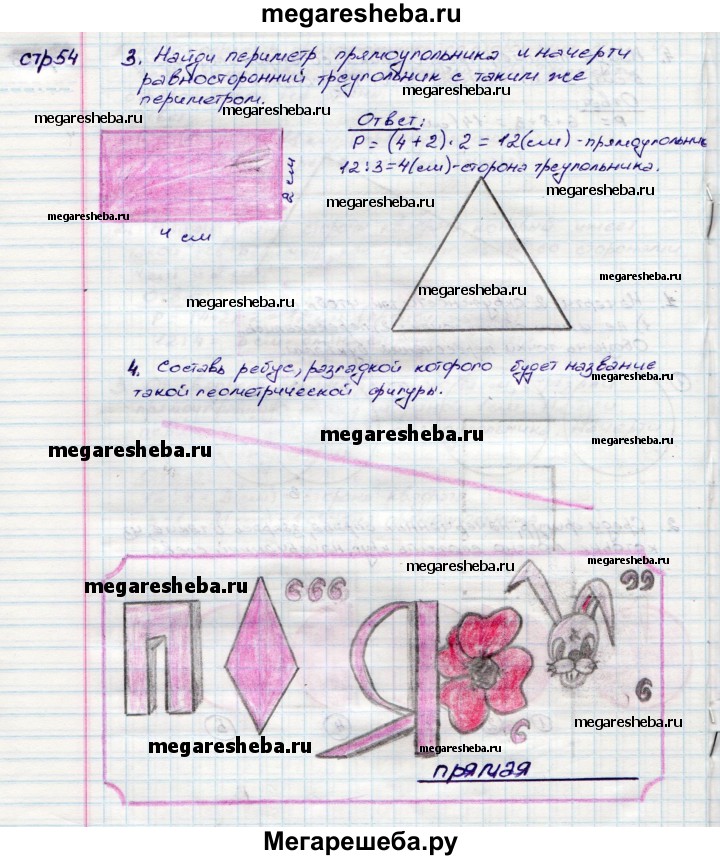 megaresheba.ru
стр54
3. Найди периметр прямоугольника и начерти
равносторонний треугольник с таким же
периметром.
megaresheba.ru
megaresheba.ru
megaresheba.ru
Ответ:
P = (4+2)·2 = 12(см) - прямоугольник
12:3=4(см)-сторона треугольника.
2 см
4 см
megaresheba.ru
megaresheba.ru
megaresheba.ru
megaresheba.ru
megaresheba.ru
4. Составь ребус, разгадкой которого будет название
такой геометрической фигуры.
megaresheba.ru
megaresheba.ru
megaresheba.ru
megaresheba.ru
megaresheba.ru
megaresheba.ru
megaresheba.ru
П
Я
megaresheba.ru
megaresheba.ru
megaresheba.ru
megaresheba.ru
прямая
Мегарешеба.ру